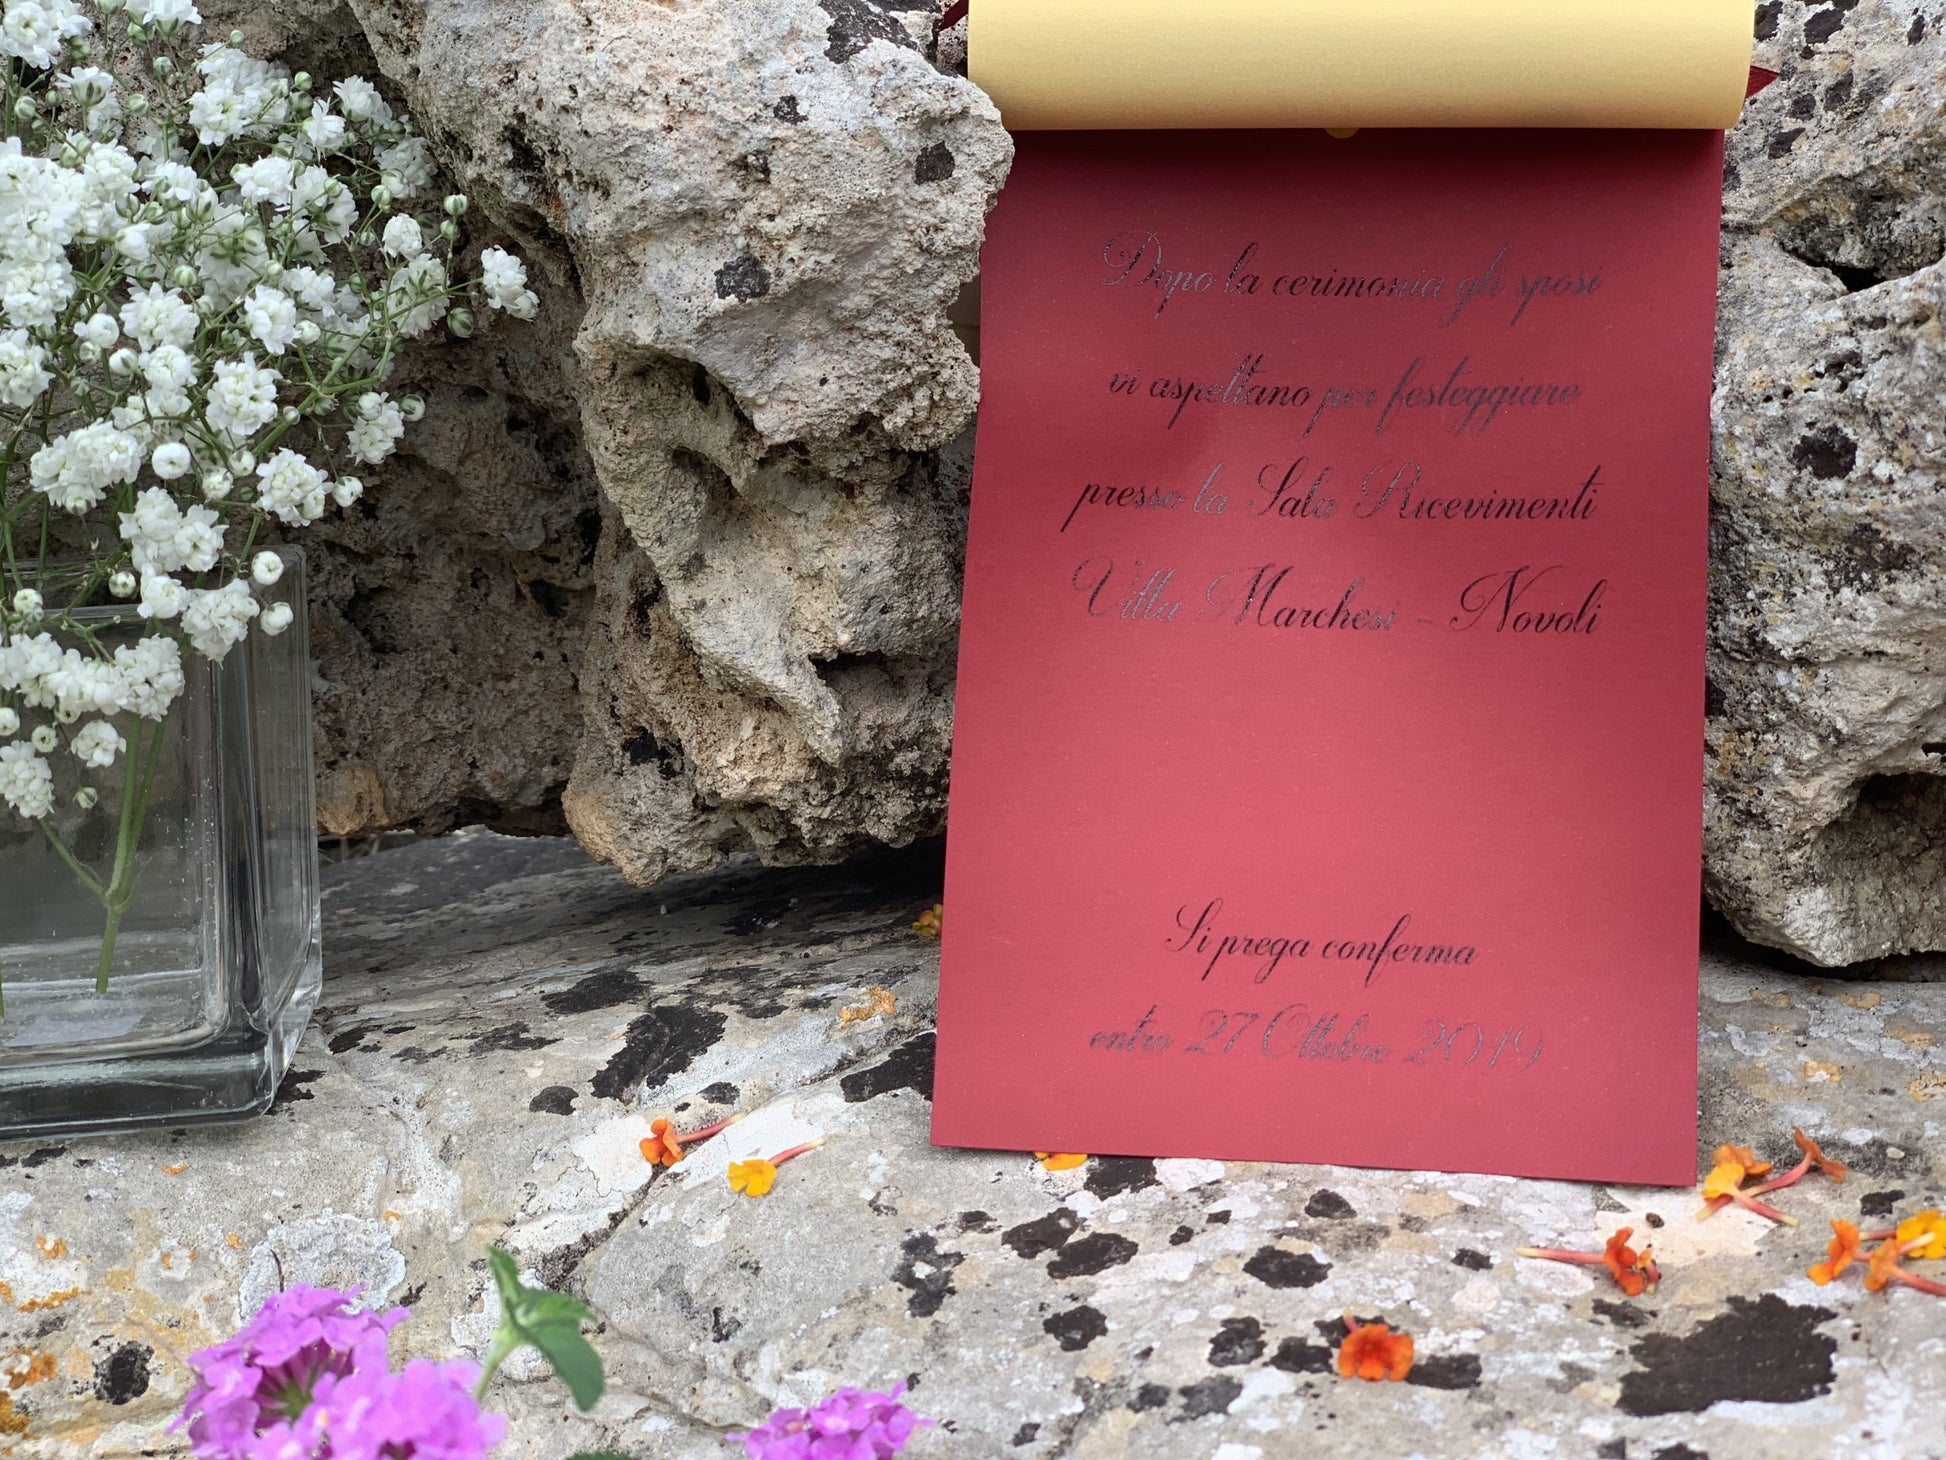 Dopo la cerimonia gli sposi
vi aspettano per festeggiare
presso la Sala Ricevimenti
Villa Marchesi - Novoli
Si prega conferma
entro 27 Ottobre 2019